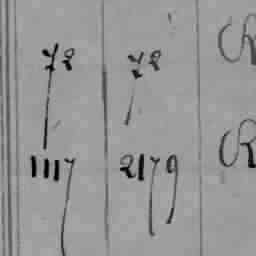 72 72 R
1117 2179 R